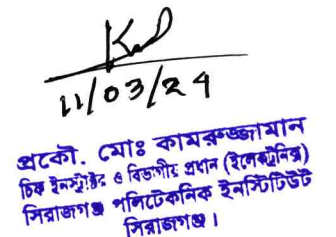 11/03/24
প্রকৌ. মোঃ কামরুজ্জামান
চিফ ইনস্ট্রাক্টর ও বিভাগীয় প্রধান (ইলেকট্রনিক্স)
সিরাজগঞ্জ পলিটেকনিক ইনস্টিটিউট
সিরাজগঞ্জ।